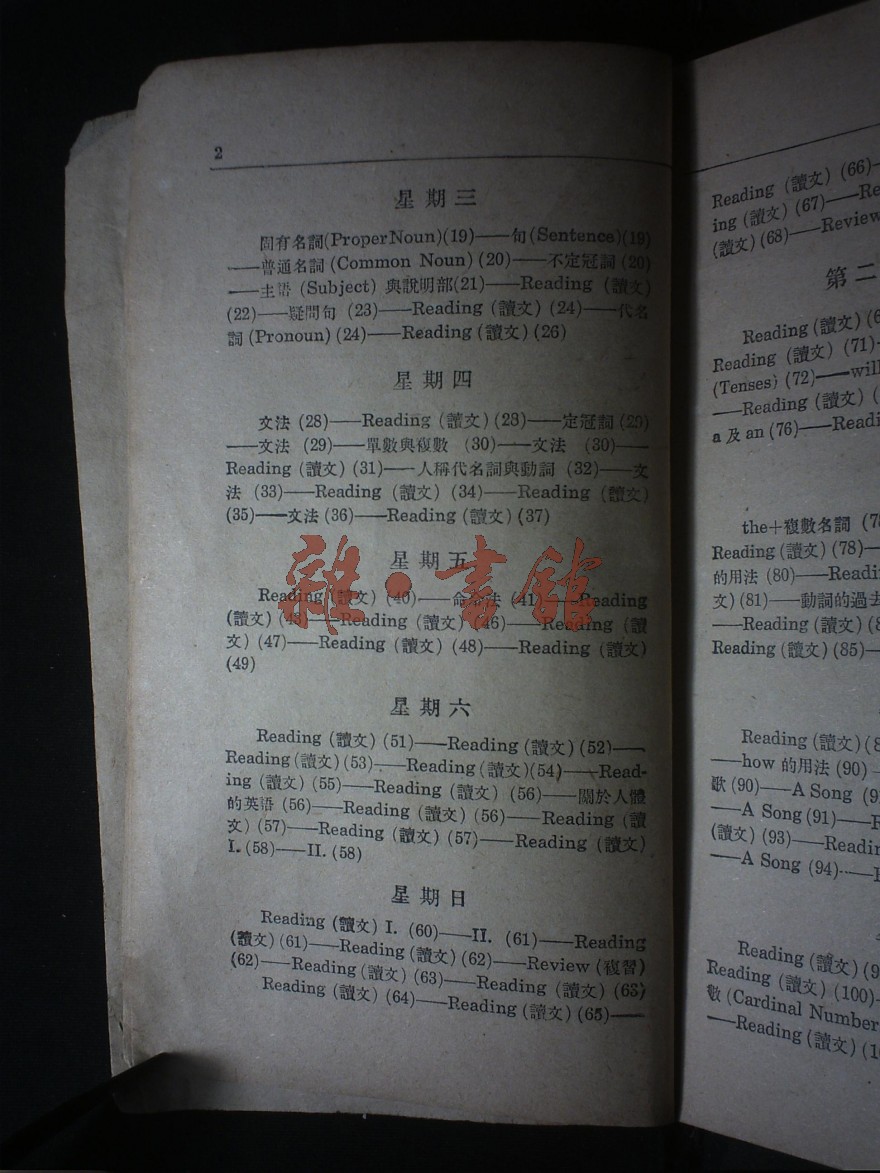 2
星期三
固有名詞(Proper Noun)(19)——句(Sentence)(19)
——普通名詞(Common Noun)(20)——不定冠詞(20)
——主語(Subject)與說明部(21)——Reading(讀文)
(22)——疑問句(23)——Reading(讀文)(24)——代名
詞(Pronoun)(24)——Reading(讀文)(26)
星期四
文法(28)——Reading(讀文)(28)——定冠詞(29)
——文法(29)——單數與複數(30)——文法(30)——
Reading(讀文)(31)——人稱代名詞與動詞(32)——文
法(33)——Reading(讀文)(34)——Reading(讀文)
(35)——文法(36)——Reading(讀文)(37)
星期五
Reading(讀文)(40)——命令法(41)——Reading
(讀文)(43)——Reading(讀文)(46)——Reading(讀
文)(47)——Reading(讀文)(48)——Reading(讀文)
(49)
雜·書館
星期六
Reading(讀文)(51)——Reading(讀文)(52)——
Reading(讀文)(53)——Reading(讀文)(54)——Read-
ing(讀文)(55)——Reading(讀文)(56)——關於人體
的英語(56)——Reading(讀文)(56)——Reading(讀
文)(57)——Reading(讀文)(57)——Reading(讀文)
I.(58)——II.(58)
星期日
Reading(讀文)I.(60)——II.(61)——Reading
(讀文)(61)——Reading(讀文)(62)——Review(複習)
(62)——Reading(讀文)(63)——Reading(讀文)(63)
Reading(讀文)(64)——Reading(讀文)(65)——
Reading(讀文)(66)—
ing(讀文)(67)——Re
(讀文)(68)——Review
第二
Reading(讀文)(6
Reading(讀文)(71)—
(Tenses)(72)——will
——Reading(讀文)(
a及an(76)——Readi
the+複數名詞(78
Reading(讀文)(78)—
的用法(80)——Readi
文)(81)——動詞的過去
——Reading(讀文)(8
Reading(讀文)(85)—
Reading(讀文)(8
——how的用法(90)—
歌(90)——A Song(9
——A Song(91)——R
(讀文)(93)——Readin
——A Song(94)——
Reading(讀文)(9
Reading(讀文)(100)—
數(Cardinal Number
——Reading(讀文)(10